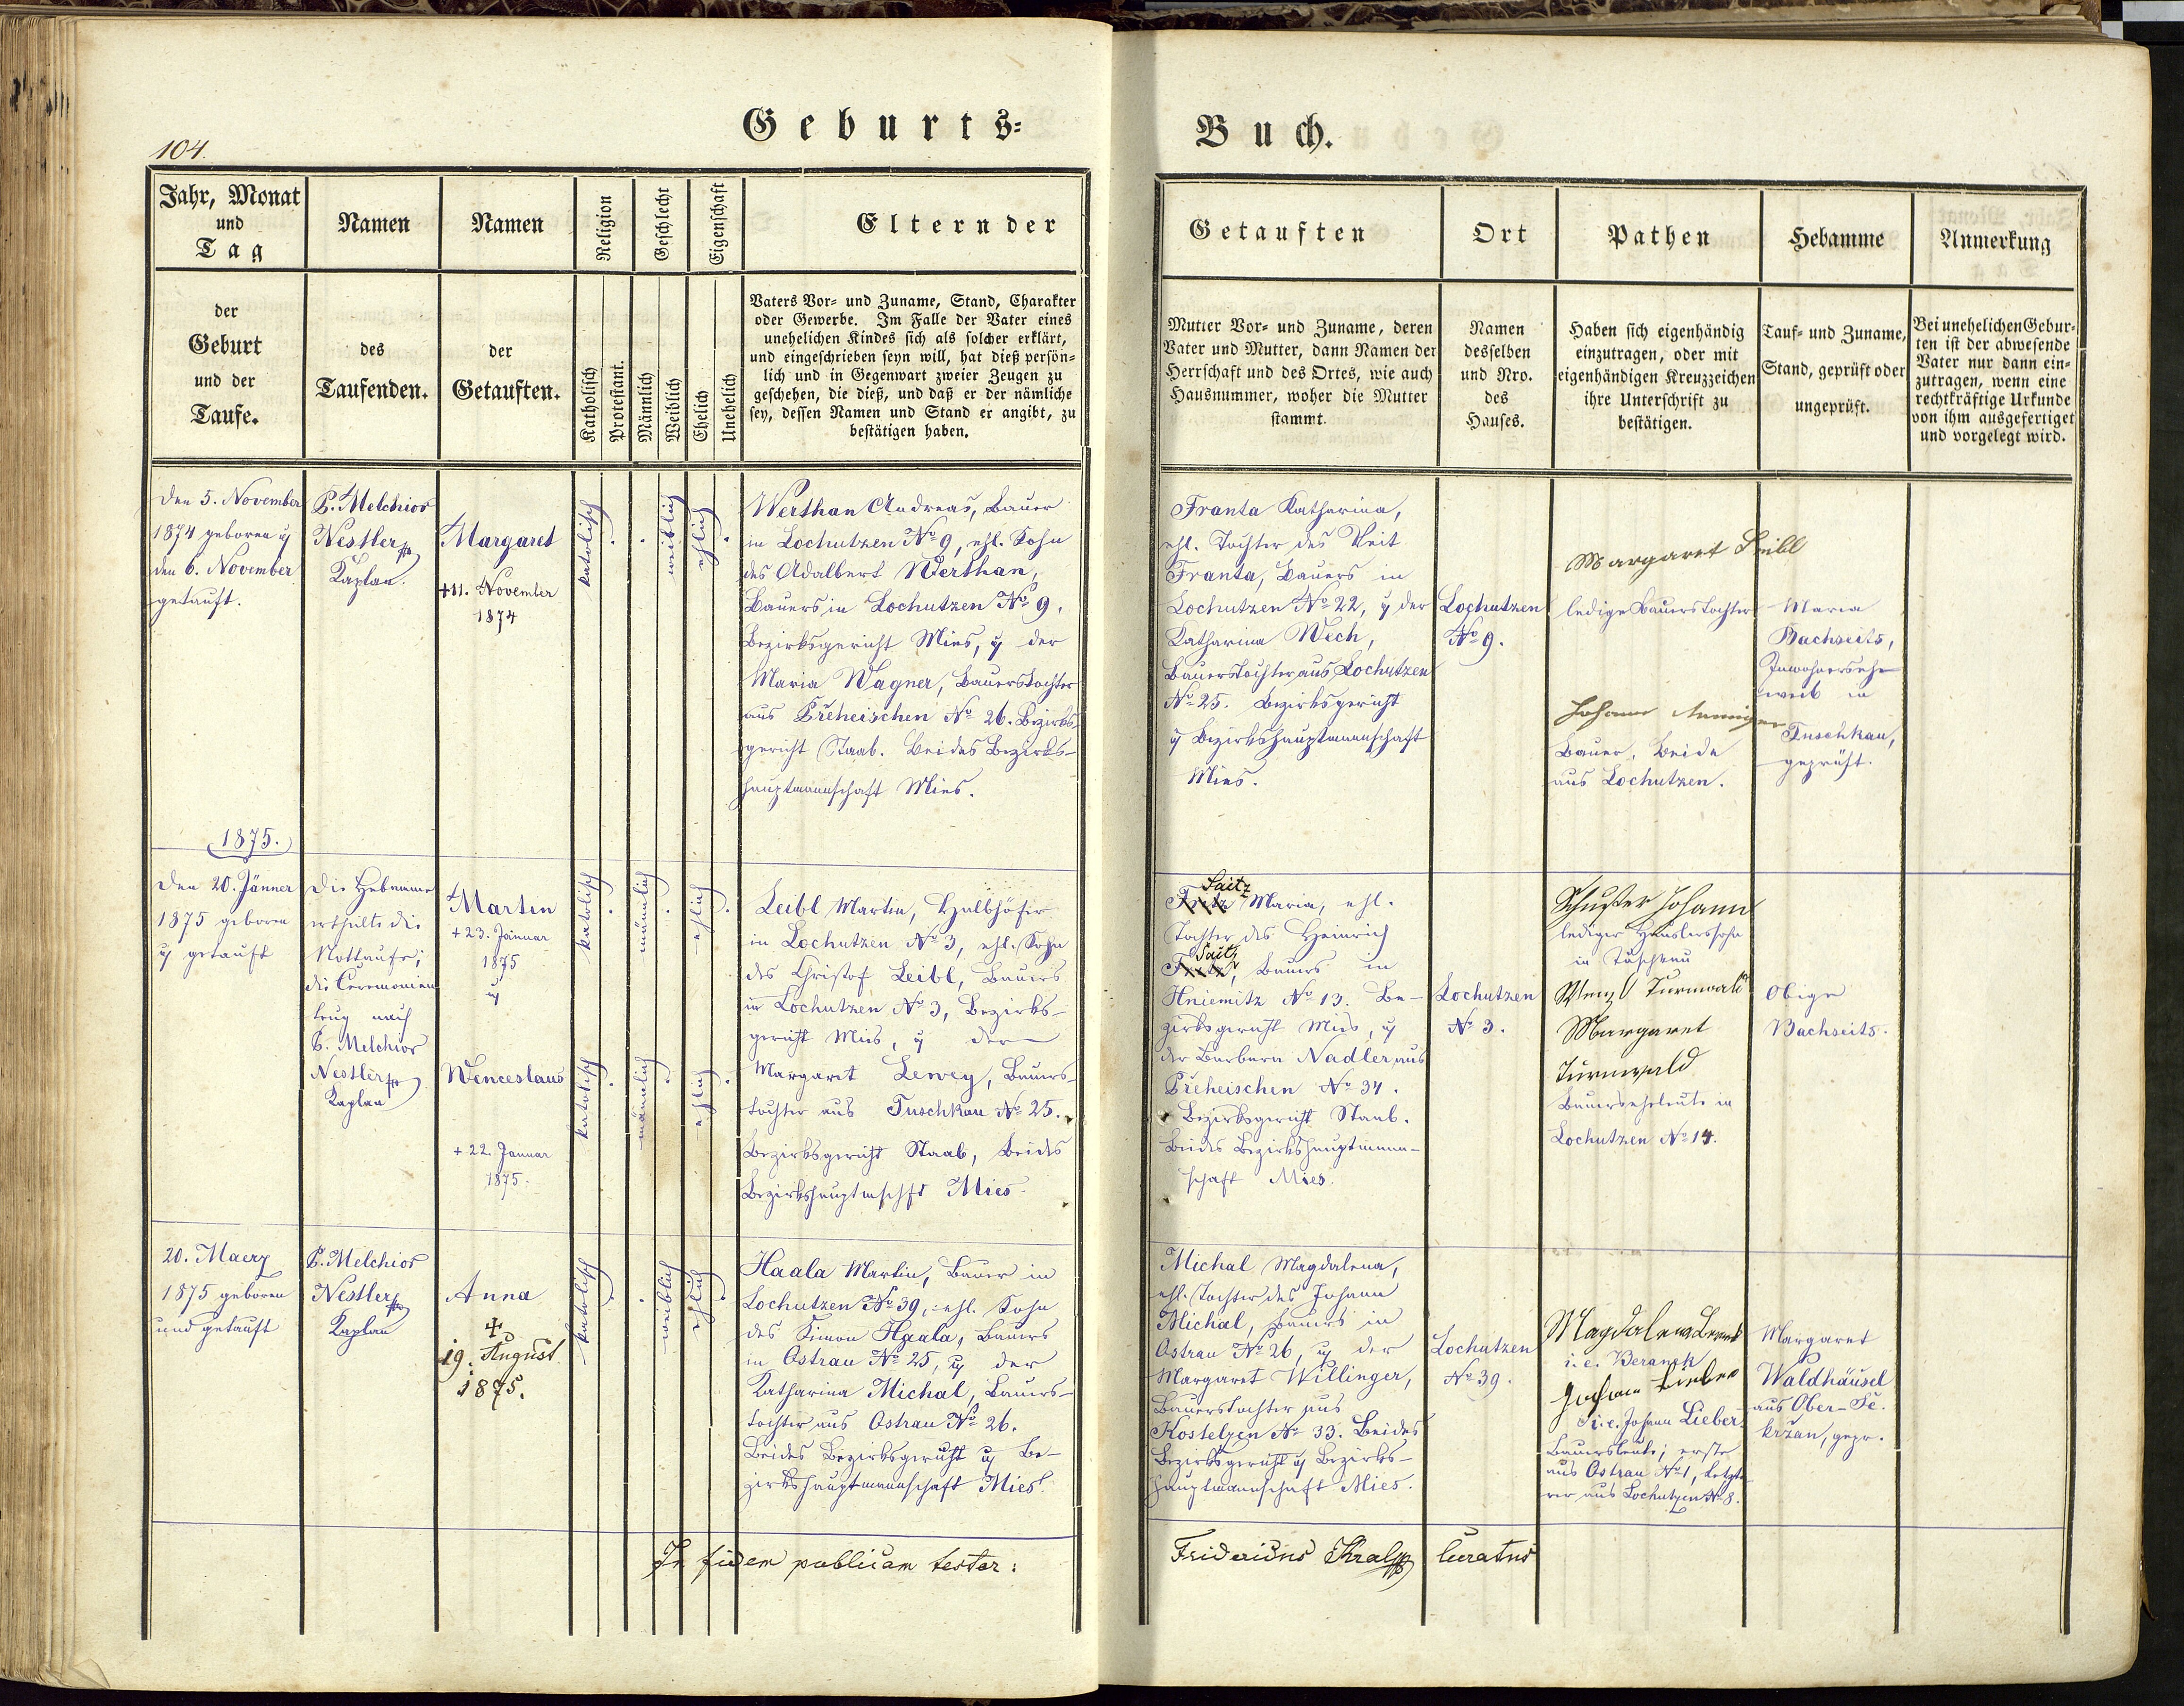 104.
Geburts=
Buch.
Jahr, Monat
und
Tag
Namen
Namen
Religion
Geschlecht
Eigenschaft
Eltern der
Getauften
Ort
Pathen
Hebamme
Anmerkung
der
Geburt
und der
Taufe.
des
Taufenden.
der
Getauften.
Katholisch
Protestant.
Männlich
Weiblich
Ehelich
Unehelich
Vaters Vor= und Zuname, Stand, Charakter
oder Gewerbe. Im Falle der Vater eines
unehelichen Kindes sich als solcher erklärt,
und eingeschrieben seyn will, hat dieß persön=
lich und in Gegenwart zweier Zeugen zu
geschehen, die dieß, und daß er der nämliche
sey, dessen Namen und Stand er angibt, zu
bestätigen haben.
Mutter Vor= und Zuname, deren
Vater und Mutter, dann Namen der
Herrschaft und des Ortes, wie auch
Hausnummer, woher die Mutter
stammt.
Namen
desselben
und Nro.
des
Hauses.
Haben sich eigenhändig
einzutragen, oder mit
eigenhändigen Kreuzzeichen
ihre Unterschrift zu
bestätigen.
Tauf= und Zuname,
Stand, geprüft oder
ungeprüft.
Bei unehelichen Gebur=
ten ist der abwesende
Vater nur dann ein=
zutragen, wenn eine
rechtkräftige Urkunde
von ihm ausgefertiget
und vorgelegt wird.
Den 5. November
1874 geboren ÿ
den 6. November
getauft.
P. Melchior
Nestler
Kaplan.
Margaret
+ 11. November
1874
katolisch
weiblich
ehlich
Werthan Andreas, Bauer
in Lochutzen No 9, ehl. Sohn
des Adalbert Werthan,
Bauers in Lochutzen No 9,
Bezirksgericht Mies, ÿ der
Maria Wagner, Bauerstochter
aus Přeheischen No 26. Bezirks=
gericht Staab. Beides Bezirks-
hauptmannschaft Mies.
Franta Katharina,
ehl. Tochter des Veit
Franta, Bauers in
Lochutzen No 22, ÿ der
Katharina Wech,
Bauerstochter aus Lochutzen
No 25. Bezirksgericht
ÿ Bezirkshauptmannschaft
Mies.
Lochutzen
No 9.
Margaret Leibl
ledige Bauerstochter
Johann
Bauer, Beide
aus Lochutzen.
Maria
Bachseits,
Inwohnersehe
weib in
Tuschkau,
geprüft.
1875.
Den 20. Jänner
1875 geboren
ÿ getauft
Die Hebamme
ertheilte die
Nottaufe;
die Ceremonien
trug nach
P. Melchior
Nestler
Kaplan
Martin
+ 23. Januar
1875
ÿ
Wenceslaus
+ 22. Januar
1875.
katolisch
männlich
ehlich
katolisch
männlich
ehlich
Leibl Martin, Halbhöfer
in Lochutzen No 3, ehl. Sohn
des Christof Leibl, Bauers
in Lochutzen No 3, Bezirks-
gericht Mies, ÿ der
Margaret Lewey, Bauers-
tochter aus Tuschkau No 25.
Bezirksgericht Staab, Beides
Bezirkshauptmschft Mies.
Saitz
Maria, ehl.
Tochter des Heinrich
Saitz
Bauers in
Hniemitz No 13. Be-
zirksgericht Mies, ÿ
der Barbara Nadler, aus
Přeheischen No 34.
Bezirksgericht Staab.
Beides Bezirkshauptmann-
schaft Mies.
Lochutzen
No 3.
Schuster Johann
lediger Häuslerssohn
in Tuschkau
Wenzl Turnwald
Margaret
Turnwald
Bauerseheleute in
Lochutzen No 14.
Obige
Bachseits.
20. Maerz
1875 geboren
und getauft
P. Melchior
Nestler
Kaplan
Anna
+
19. August
1875.
katolisch
weiblich
ehlich
Haala Martin, Bauer in
Lochutzen No 39, ehl. Sohn
des Simon Haala, Bauers
in Ostrau No 25, ÿ der
Katharina Michal, Bauers-
tochter aus Ostrau No 26.
Beides Bezirksgericht ÿ Be-
zirkshauptmannschaft Mies.
Michal Magdalena,
ehl. Tochter des Johann
Michal, Bauers in
Ostrau No 26, ÿ der
Margaret Willinger,
Bauerstochter aus
Kostelzen No 33. Beides
Bezirksgericht ÿ Bezirks-
hauptmannschaft Mies.
Lochutzen
No 39.
Magdalena
i. e. Beranek
Johann Lieber
i. e. Johann Lieber.
Bauersleute; erste
aus Ostrau No 1, letzte-
rer aus Lochutzen No 8.
Margaret
Waldhäusel
aus Ober-Se-
kržan, gepr.
In fidem publicam testor:
Fridericus Kral
Curatus